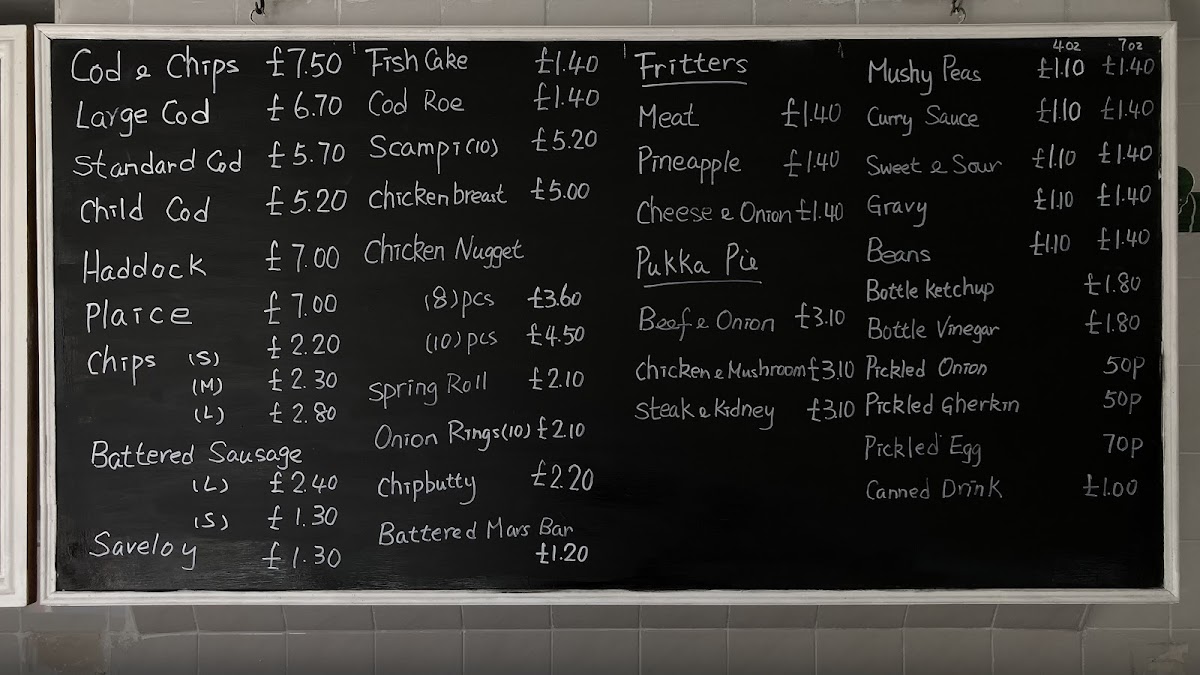 Cod & Chips £7.50
Large Cod £6.70
Standard Cod £5.70
Child Cod £5.20
Haddock £7.00
Plaice £7.00
Chips (S) £2.20
(M) £2.30
(L) £2.80
Battered Sausage
(L) £2.40
(S) £1.30
Saveloy £1.30
Fish Cake £1.40
Cod Roe £1.40
Scampi (10) £5.20
Chicken breast £5.00
Chicken Nugget
(8) pcs £3.60
(10) pcs £4.50
Spring Roll £2.10
Onion Rings (10) £2.10
Chipbutty £2.20
Battered Mars Bar
£1.20
Fritters
Meat £1.40
Pineapple £1.40
Cheese & Onion £1.40
Pukka Pie
Beef & Onion £3.10
Chicken & Mushroom £3.10
Steak & Kidney £3.10
4oz 7oz
Mushy Peas £1.10 £1.40
Curry Sauce £1.10 £1.40
Sweet & Sour £1.10 £1.40
Gravy £1.10 £1.40
Beans £1.10 £1.40
Bottle Ketchup £1.80
Bottle Vinegar £1.80
Pickled Onion 50p
Pickled Gherkin 50p
Pickled Egg 70p
Canned Drink £1.00